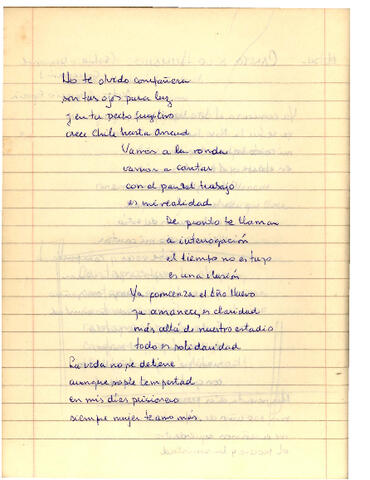 No te olvido compañera
son tus ojos pura luz
y en tu pecho fugitivo
crece Chile hasta Ancud
Vamos a la ronda
vamos a cantar
con el pan del trabajo
es mi realidad
De pronto te llaman
a interrogación
el tiempo no es tuyo
es una ilusión
Ya comienza el Año Nuevo
ya amanece, es claridad
más allá de nuestro estadio
todo es solidaridad
La vida no se detiene
aunque sople tempestad
en mis días prisionero
siempre mujer te amo más.